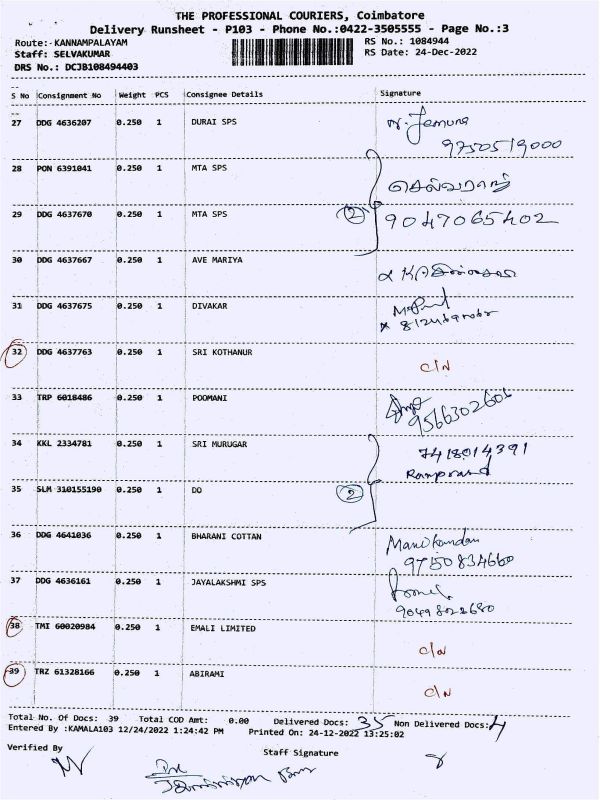 THE PROFESSIONAL COURIERS, Coimbatore
Delivery Runsheet - P103 - Phone No.:0422-3505555 - Page No.:3
Route:- KANNAMPALAYAM
RS No.: 1084944
Staff: SELVAKUMAR
RS Date: 24-Dec-2022
DRS No.: DCJB108494403
S No Consignment No Weight PCS Consignee Details Signature
27 DDG 4636207 0.250 1 DURAI SPS
9750519000
28 PON 6391041 0.250 1 MTA SPS செல்வராஜ்
29 DDG 4637670 0.250 1 MTA SPS 2 9047065402
30 DDG 4637667 0.250 1 AVE MARIYA
31 DDG 4637675 0.250 1 DIVAKAR
32 DDG 4637763 0.250 1 SRI KOTHANUR C/N
33 TRP 6018486 0.250 1 POOMANI
9566302601
34 KKL 2334781 0.250 1 SRI MURUGAR 7418014391
Ramprasad
35 SLM 310155190 0.250 1 DO 2
36 DDG 4641036 0.250 1 BHARANI COTTAN Manikandan
9750834660
37 DDG 4636161 0.250 1 JAYALAKSHMI SPS
38 TMI 60020984 0.250 1 EMALI LIMITED C/N
39 TRZ 61328166 0.250 1 ABIRAMI C/N
Total No. Of Docs: 39 Total COD Amt: 0.00 Delivered Docs: 35 Non Delivered Docs: 4
Entered By :KAMALA103 12/24/2022 1:24:42 PM Printed On: 24-12-2022 13:25:02
Verified By
Staff Signature